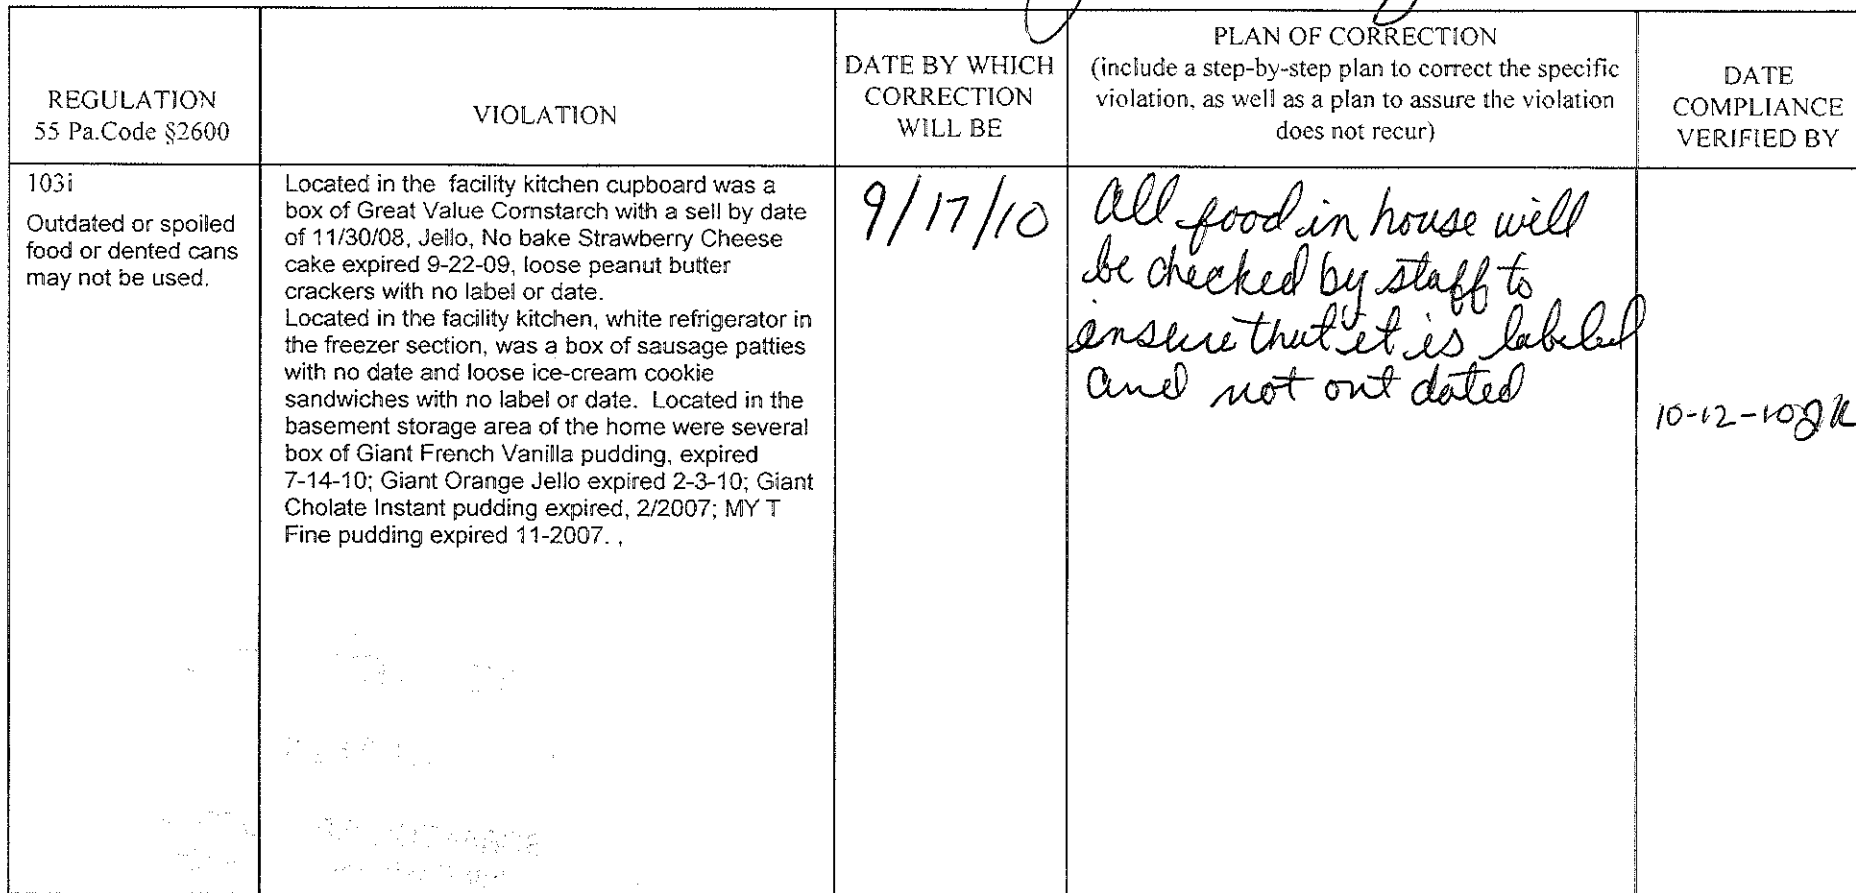 REGULATION
55 Pa.Code §2600
VIOLATION
DATE BY WHICH
CORRECTION
WILL BE
PLAN OF CORRECTION
(include a step-by-step plan to correct the specific
violation, as well as a plan to assure the violation
does not recur)
DATE
COMPLIANCE
VERIFIED BY
103i
Outdated or spoiled
food or dented cans
may not be used.
Located in the facility kitchen cupboard was a
box of Great Value Cornstarch with a sell by date
of 11/30/08, Jello, No bake Strawberry Cheese
cake expired 9-22-09, loose peanut butter
crackers with no label or date.
Located in the facility kitchen, white refrigerator in
the freezer section, was a box of sausage patties
with no date and loose ice-cream cookie
sandwiches with no label or date. Located in the
basement storage area of the home were several
box of Giant French Vanilla pudding, expired
7-14-10; Giant Orange Jello expired 2-3-10; Giant
Cholate Instant pudding expired, 2/2007; MY T
Fine pudding expired 11-2007. ,
9/17/10
All food in house will
be checked by staff to
insure that it is labeled
and not out dated
10-12-10